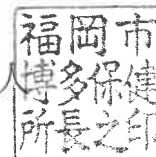 福岡市
人博多保健
所長之印